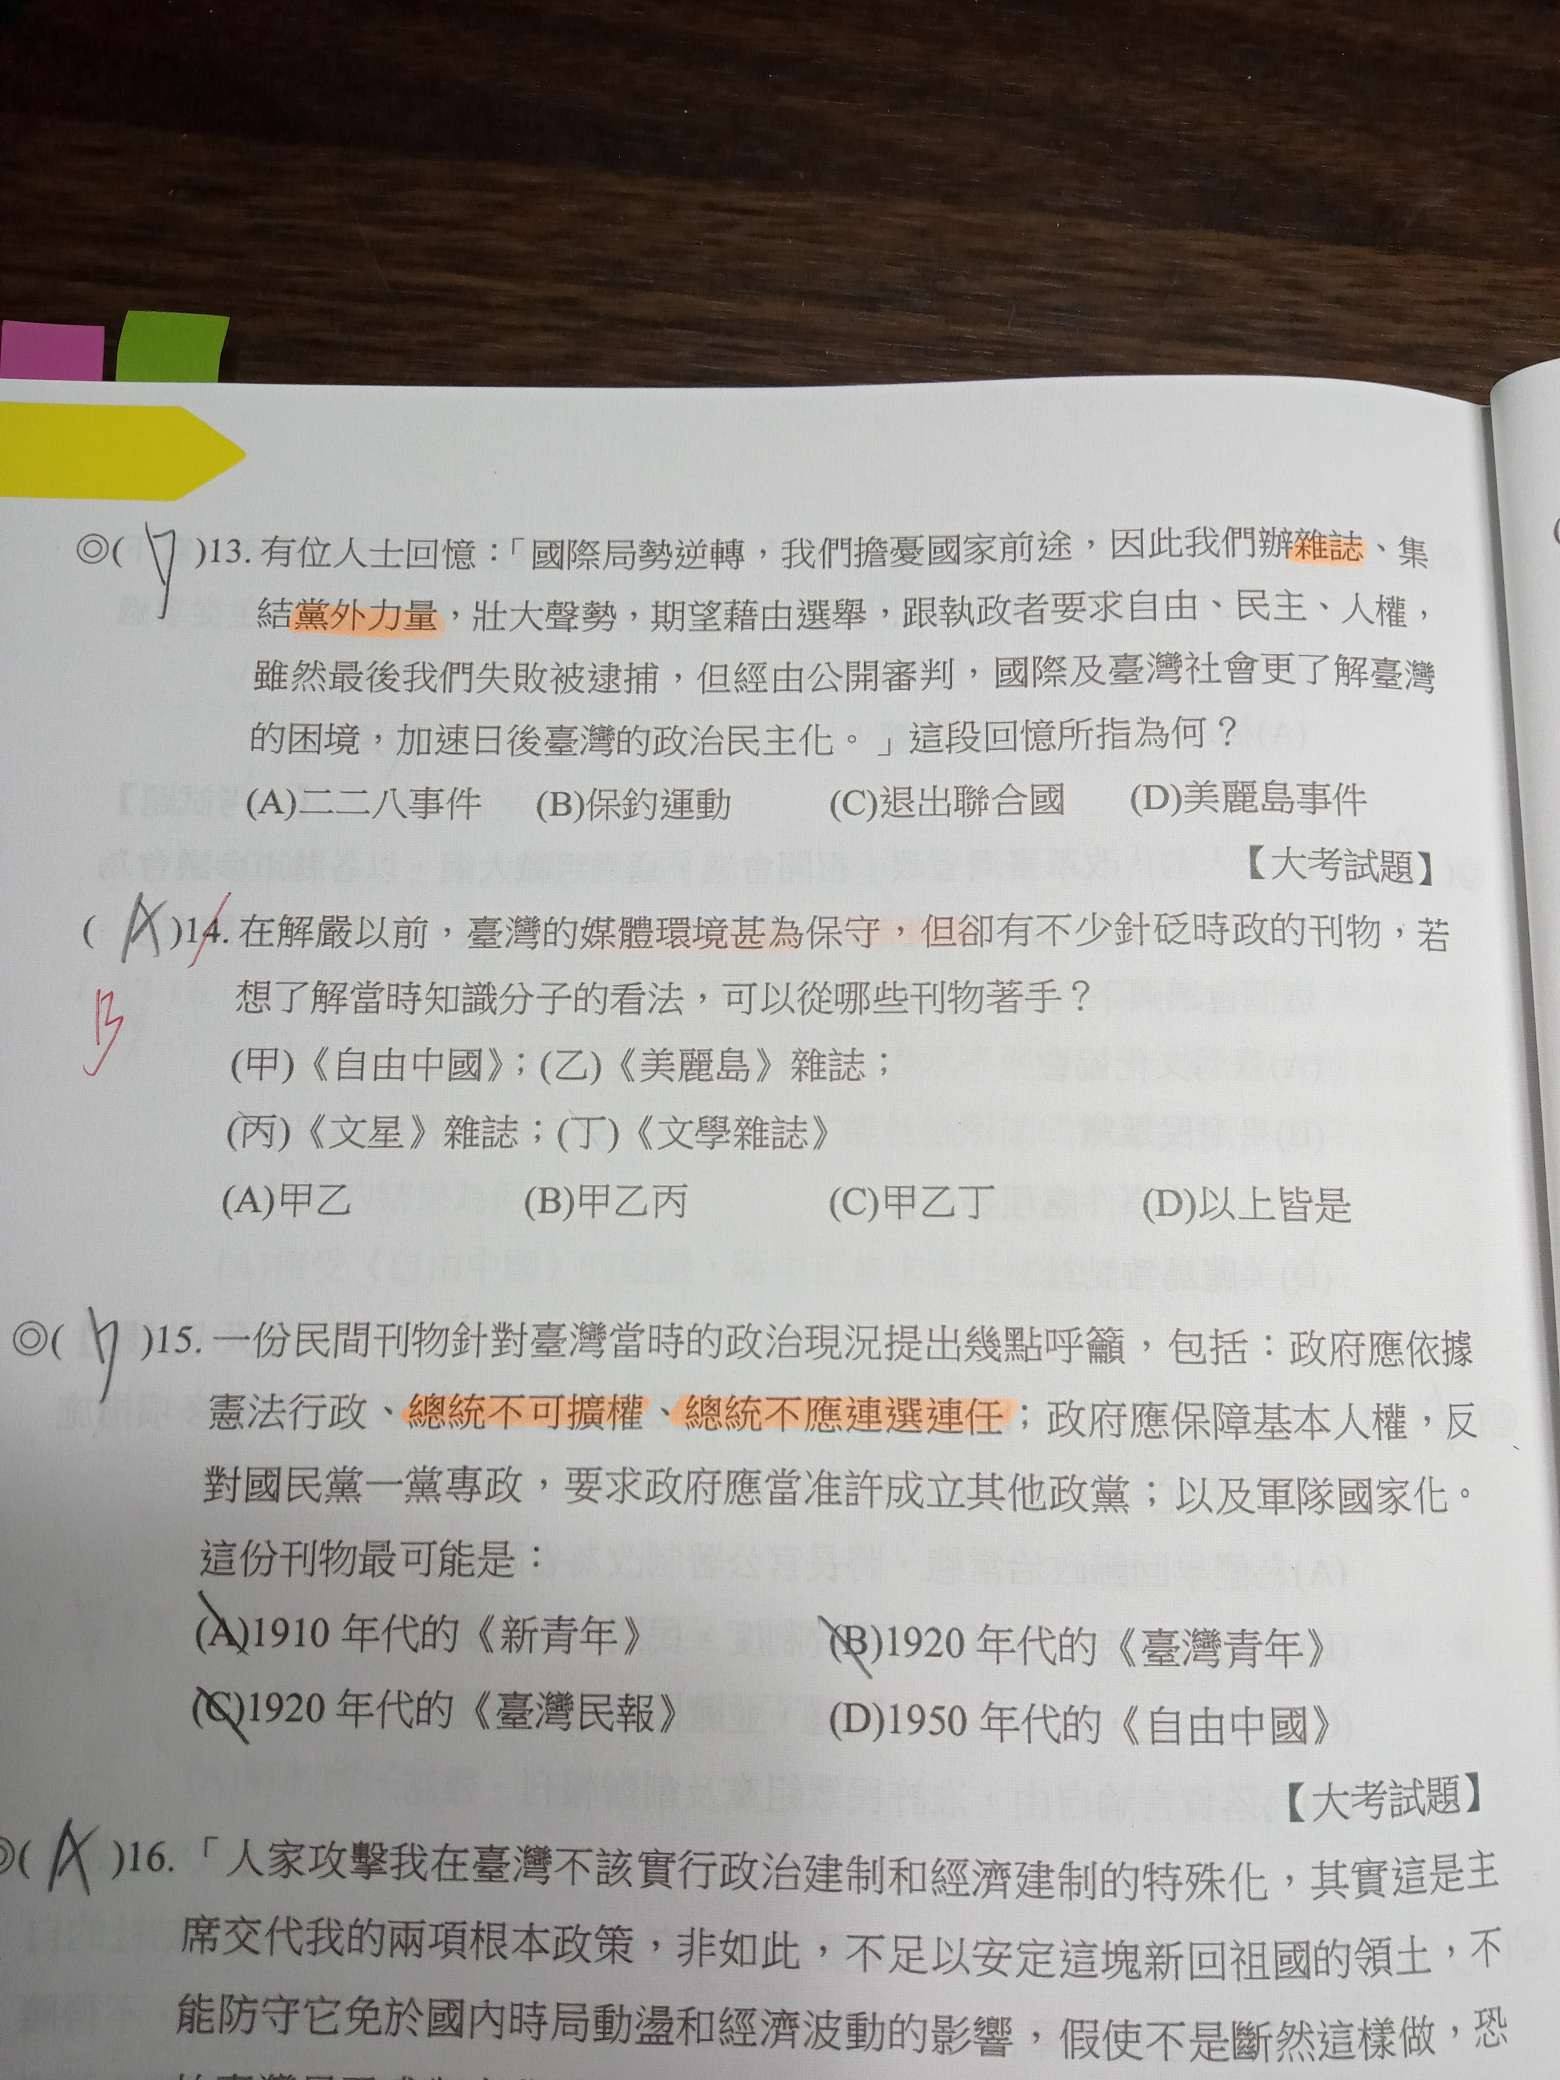 ◎( D )13. 有位人士回憶：「國際局勢逆轉，我們擔憂國家前途，因此我們辦雜誌、集
結黨外力量，壯大聲勢，期望藉由選舉，跟執政者要求自由、民主、人權，
雖然最後我們失敗被逮捕，但經由公開審判，國際及臺灣社會更了解臺灣
的困境，加速日後臺灣的政治民主化。」這段回憶所指為何？
(A)二二八事件 (B)保釣運動 (C)退出聯合國 (D)美麗島事件
【大考試題】
( A )14. 在解嚴以前，臺灣的媒體環境甚為保守，但卻有不少針砭時政的刊物，若
B
想了解當時知識分子的看法，可以從哪些刊物著手？
(甲)《自由中國》；(乙)《美麗島》雜誌；
(丙)《文星》雜誌；(丁)《文學雜誌》
(A)甲乙 (B)甲乙丙 (C)甲乙丁 (D)以上皆是
◎( D )15. 一份民間刊物針對臺灣當時的政治現況提出幾點呼籲，包括：政府應依據
憲法行政、總統不可擴權、總統不應連選連任；政府應保障基本人權，反
對國民黨一黨專政，要求政府應當准許成立其他政黨；以及軍隊國家化。
這份刊物最可能是：
(A)1910 年代的《新青年》 (B)1920 年代的《臺灣青年》
(C)1920 年代的《臺灣民報》 (D)1950 年代的《自由中國》
【大考試題】
◎( A )16. 「人家攻擊我在臺灣不該實行政治建制和經濟建制的特殊化，其實這是主
席交代我的兩項根本政策，非如此，不足以安定這塊新回祖國的領土，不
能防守它免於國內時局動盪和經濟波動的影響，假使不是斷然這樣做，恐